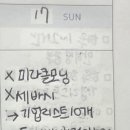 17 SUN
× 미라클모닝
× 세바시
→ 기업리스트 10개